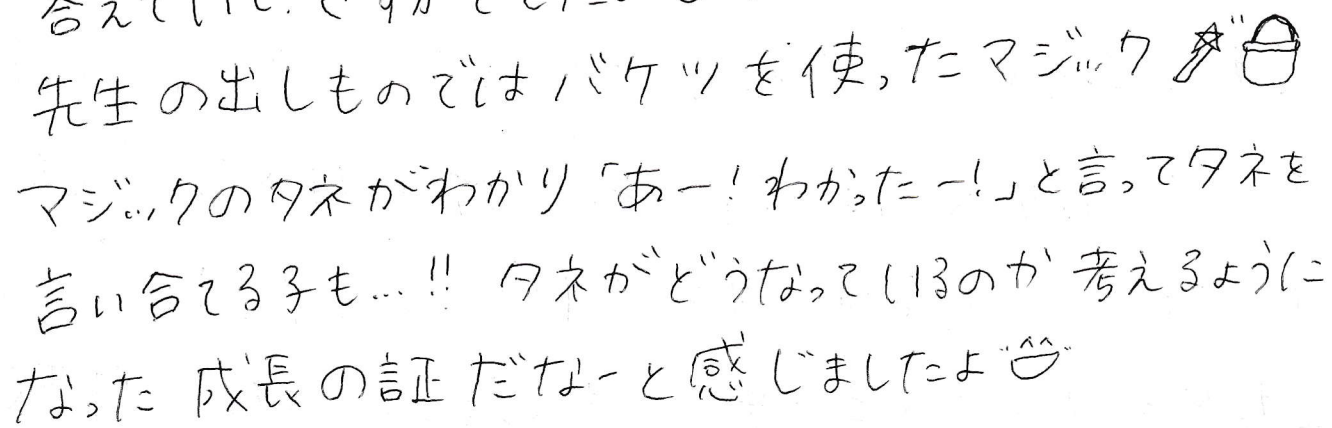 先生の出しものではバケツを使ったマジック
マジックのタネがわかり「あー!わかったー!」と言ってタネを
言い合てる子も…!! タネがどうなっているのか考えるように
なった成長の証だなーと感じましたよ